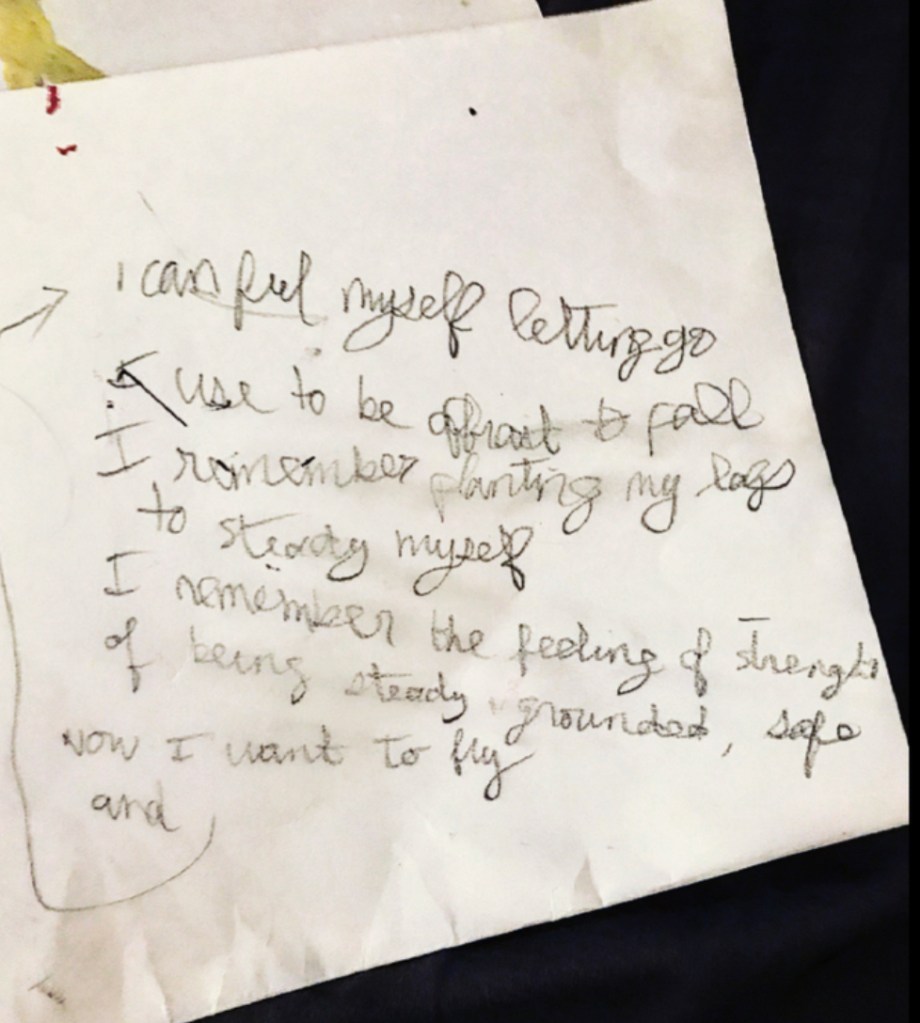 I can feel myself letting go
I use to be affrait to fall
I remember planting my legs
to steady myself
I remember the feeling of strenght
of being steady, grounded, safe
Now I want to fly
and